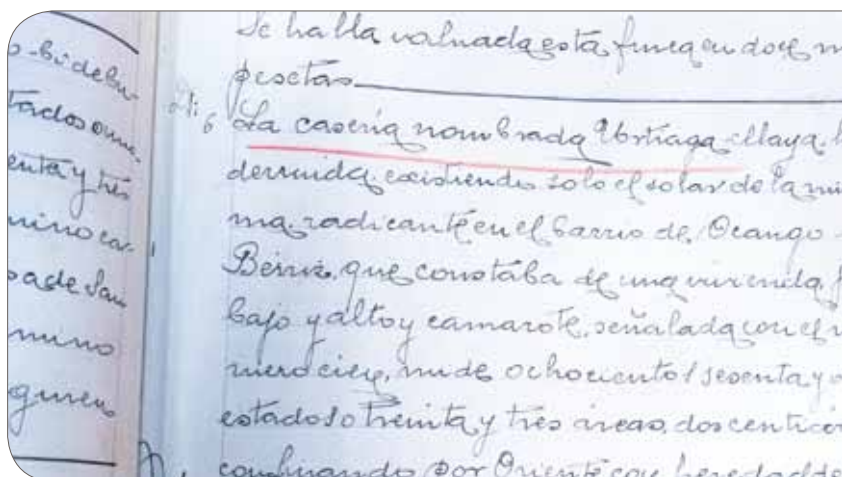 o-bidebu-
tados o une-
enta y tres
mino ca-
pa de San
mino
guren
Se halla valuada esta finca en doce m
pesetas
6 La caseria nombrada Urtiaga-Maya, h
derruida, existiendo solo el solar de la mis
ma, radicante en el barrio de Ocango
Berriz, que constaba de una vivienda,
bajo y alto y camarote, señalada con el n
mero cien, mide ochocientos sesenta y o
estados o treinta y tres áreas, dos centiár
confinando por Oriente con heredad de